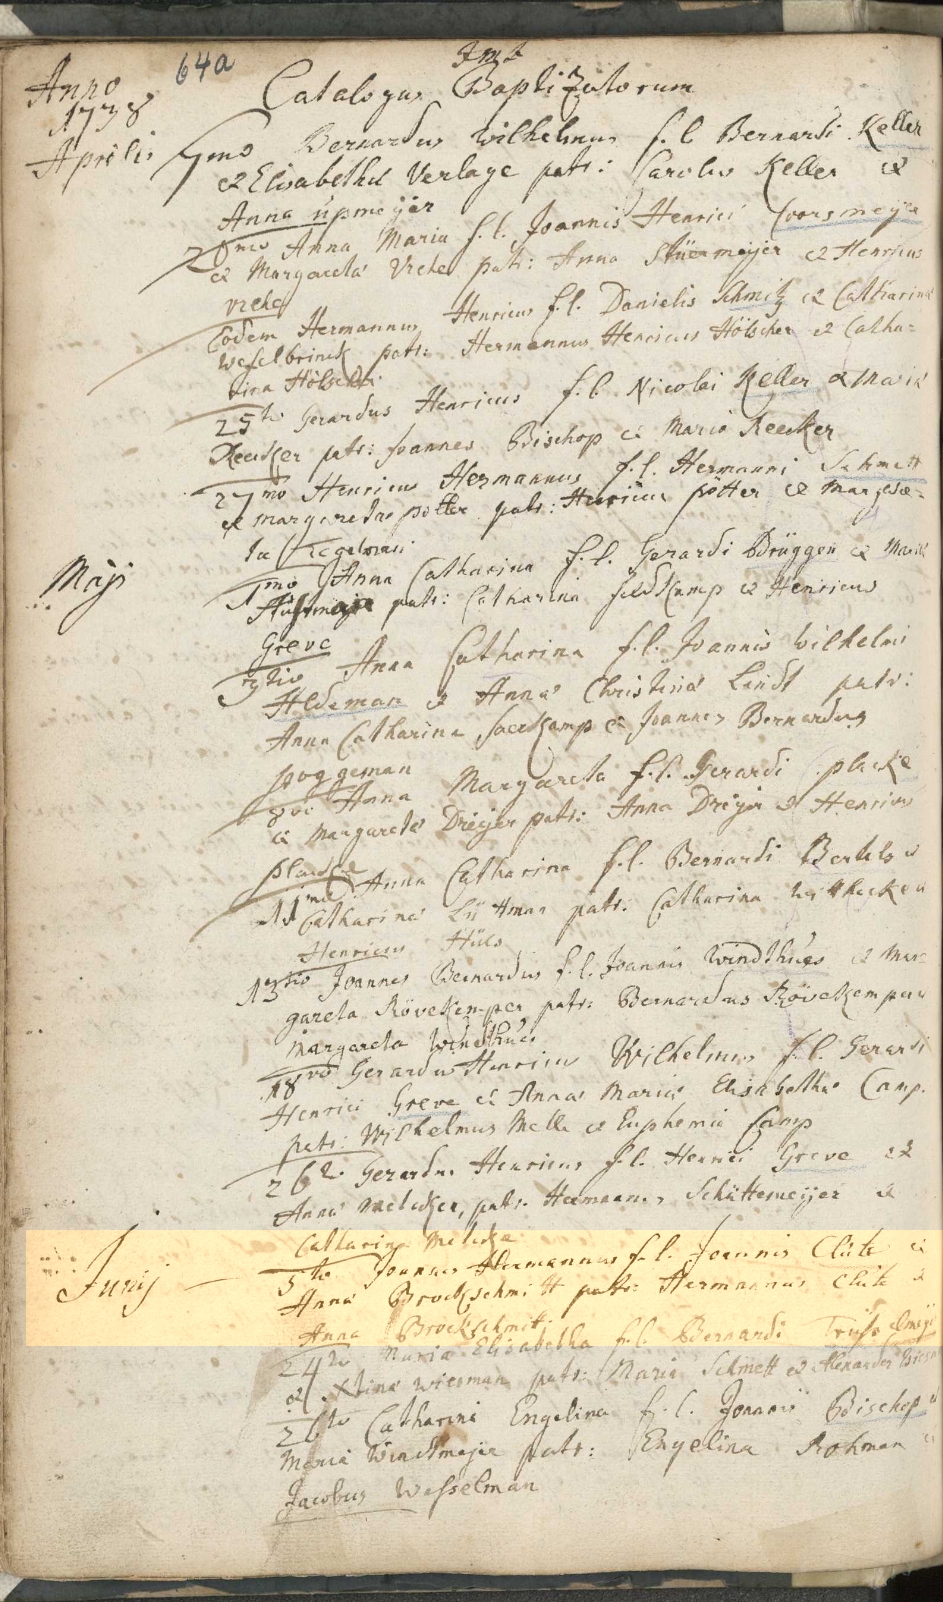 64a
Anno
1738
Catalogus Baptizatorum
Aprilis 7mo Bernardus Wilhelmus f.l. Bernardi Keller
et Elisabetha Verlage patr: Carolus Keller et
Anna üpmeijer
20mo Anna Maria f.l. Joannis Henrici Coorsmeyer
et Margareta Viehe patr: Anna Stüermeijer et Henricus
viehe
Eodem Hermannus Henricus f.l. Danielis Schmitz et Catharina
weselbrinck patr: Hermannus Henricus Hölscher et Catha-
rina Hölscher
25to Gerardus Henricus f.l. Nicolai Keller et Maria
Reecker patr: Joannes Bischop et Maria Reecker
27mo Henricus Hermannus f.l. Hermanni Schmett
et margareta potter patr: Henricus potter et margare-
ta
Maji 1mo Anna Catharina f.l. Gerardi Brüggen et Maria
patr: Catharina feldKamp et Henricus
Greve
3tio Anna Catharina f.l. Joannis Wilhelmi
Aldeman et Anna Christina Lindt patr:
Anna Catharina et Joannes Bernardus
poggeman
8vo Anna Margareta f.l. Gerardi placke
et Margareta Dreijer patr: Anna Dreijer et Henricus
placke
11mo Anna Catharina f.l. Bernardi Bertels et
Catharina Lüttman patr: Catharina et
Henricus Hüls
13tio Joannes Bernardus f.l. Joannis Windthues et Mar-
gareta Rövekemper patr: Bernardus Rövekemper et
Margareta Windthues
18vo Gerardus Henricus Wilhelmus f.l. Gerardi
Henrici Greve et Anna Maria Elisabetha Camp.
patr: Wilhelmus Melle et Euphemia Camp
26to Gerardus Henricus f.l. Henrici Greve et
Anna Melcker, patr: Hermannus Schüttemeijer et
Catharina
Junij 5to Joannes Hermannus f.l. Joannis Clüte et
Anna Brockschmitt patr: Hermannus Clüte et
Anna Brockschmitt
24to Maria Elisabetha f.l. Bernardi
et Xtina wiesman patr: Maria Schmett et Alexander
26to Catharina Engelina f.l. Joannis Bischop et
Maria Windtmeijer patr: Engelina Rohman et
Jacobus Wesselman